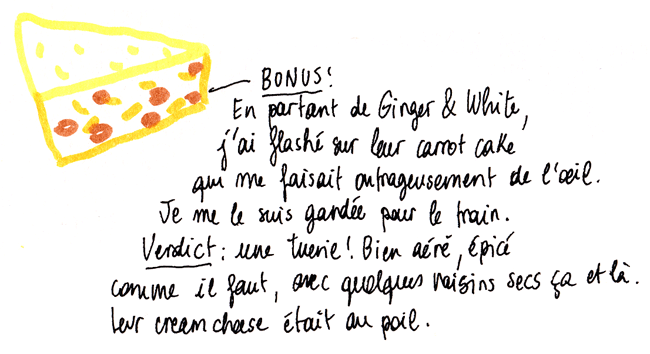 BONUS!
En partant de Ginger & White,
j'ai flashé sur leur carrot cake
qui me faisait outrageusement de l'œil.
Je me le suis gardée pour le train.
Verdict : une tuerie ! Bien aéré, épicé
comme il faut, avec quelques raisins secs ça et là.
Leur cream cheese était au poil.